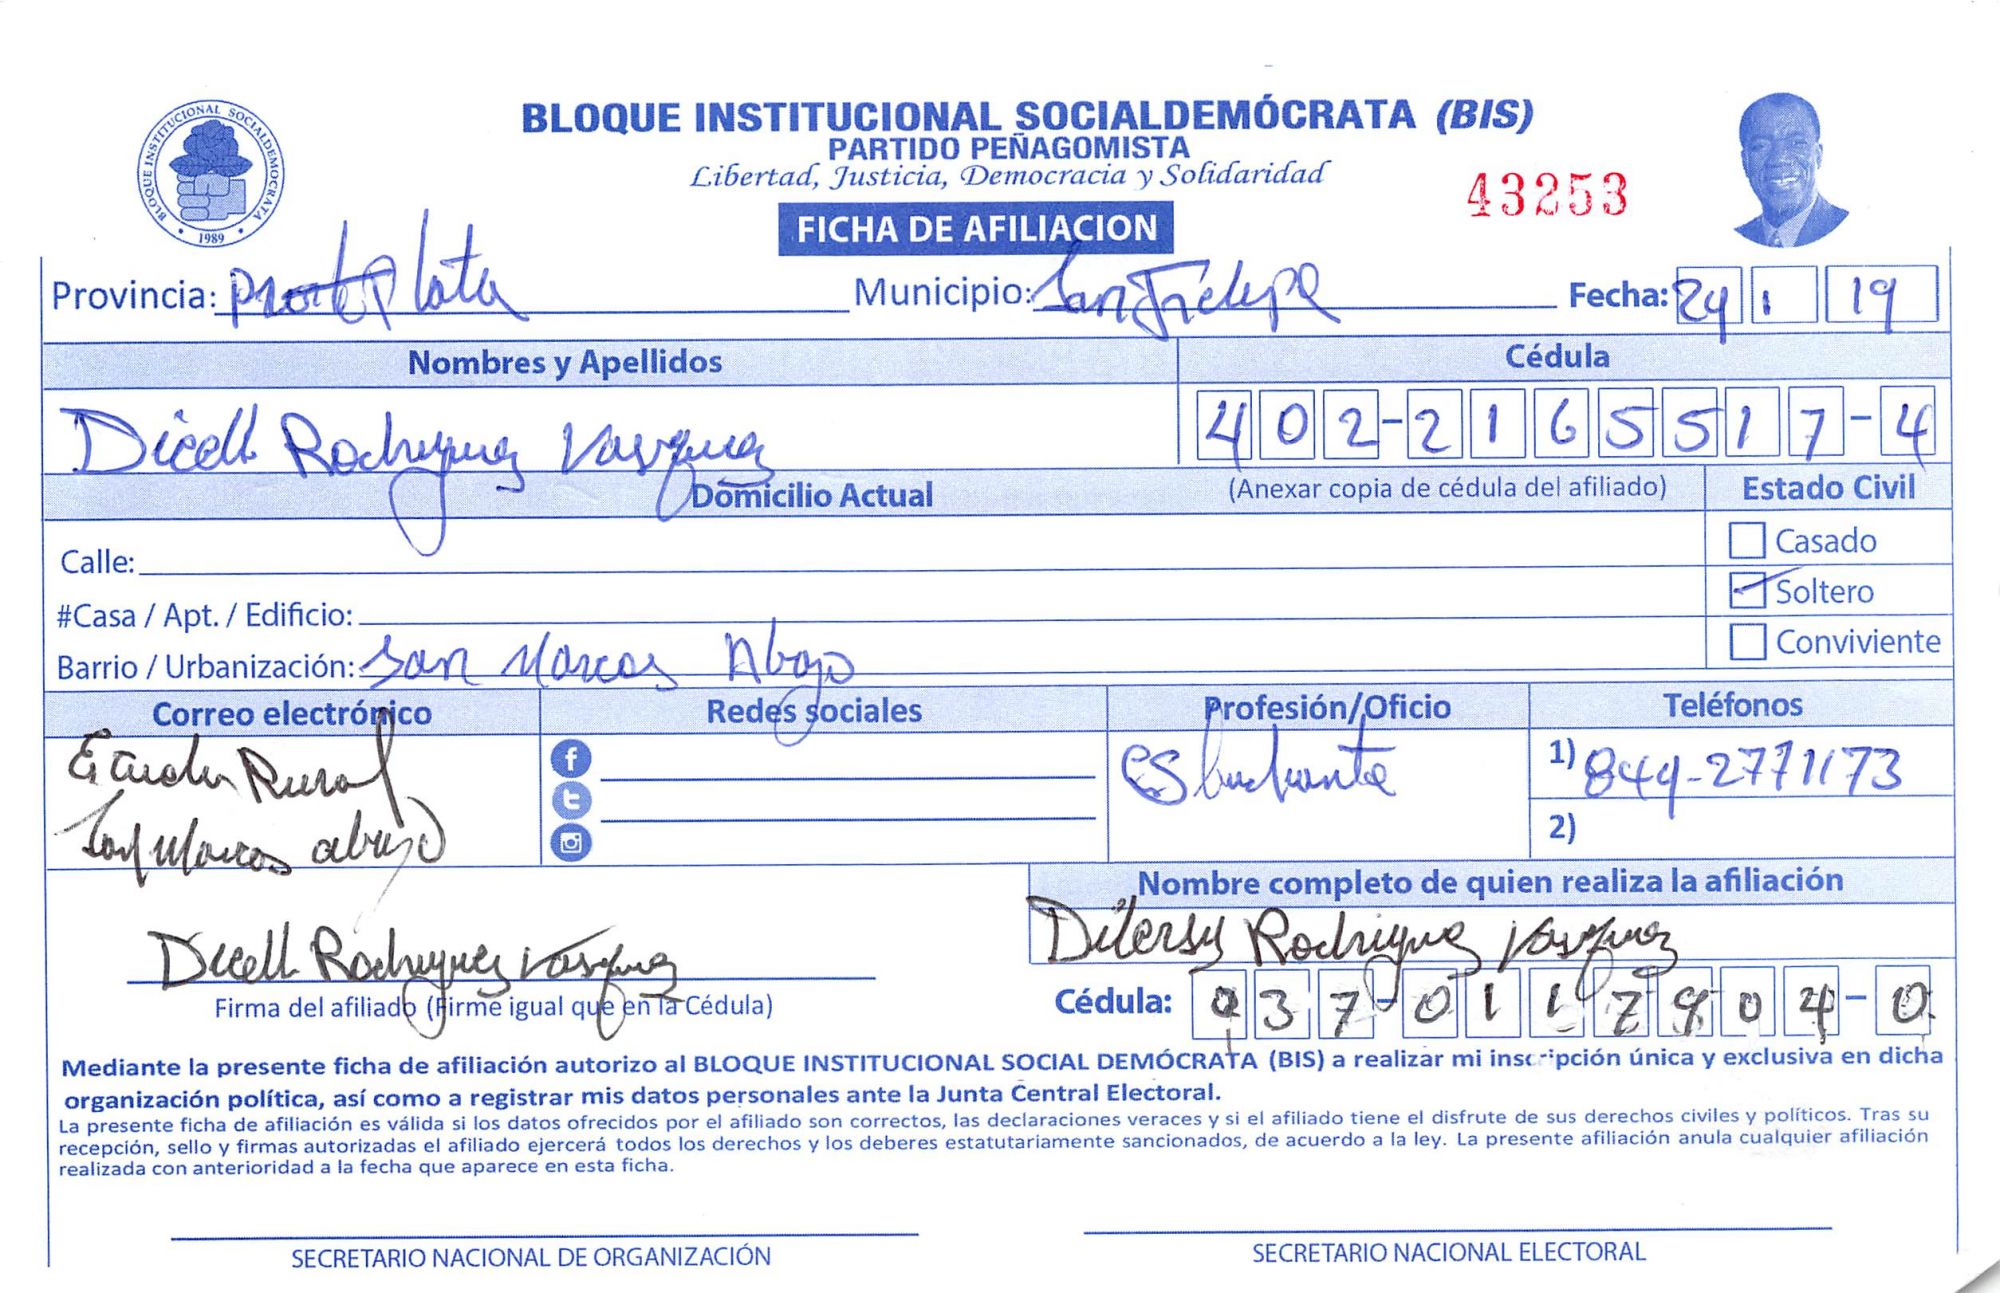 BLOQUE INSTITUCIONAL SOCIALDEMÓCRATA (BIS)
PARTIDO PEÑAGOMISTA
Libertad, Justicia, Democracia y Solidaridad
43253
BLOQUE INSTITUCIONAL SOCIALDEMOCRATA
1989
FICHA DE AFILIACION
Provincia: Plata Municipio: San Fecha: 24 1 19
Nombres y Apellidos Cédula
Dicell Rodriguez Vasquez 402-2165517-4
Domicilio Actual (Anexar copia de cédula del afiliado) Estado Civil
Calle: Casado
#Casa / Apt. / Edificio: Soltero
Barrio / Urbanización: San Marcos Abajo Conviviente
Correo electrónico Redes sociales Profesión/Oficio Teléfonos
Rural Estudiante 1) 849-2771173
San Marcos abajo 2)
Nombre completo de quien realiza la afiliación
Dilersy Rodriguez Vasquez
Dicell Rodriguez Vasquez
Firma del afiliado (Firme igual que en la Cédula) Cédula: 037-0117904-0
Mediante la presente ficha de afiliación autorizo al BLOQUE INSTITUCIONAL SOCIAL DEMÓCRATA (BIS) a realizar mi inscripción única y exclusiva en dicha
organización política, así como a registrar mis datos personales ante la Junta Central Electoral.
La presente ficha de afiliación es válida si los datos ofrecidos por el afiliado son correctos, las declaraciones veraces y si el afiliado tiene el disfrute de sus derechos civiles y políticos. Tras su
recepción, sello y firmas autorizadas el afiliado ejercerá todos los derechos y los deberes estatutariamente sancionados, de acuerdo a la ley. La presente afiliación anula cualquier afiliación
realizada con anterioridad a la fecha que aparece en esta ficha.
SECRETARIO NACIONAL DE ORGANIZACIÓN SECRETARIO NACIONAL ELECTORAL